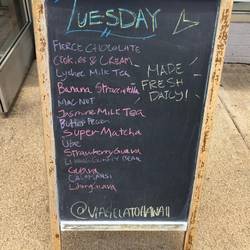 TUESDAY
FIERCE CHOCOLATE
COOKIES & CREAM
Lychee Milk Tea
Banana Stracciatella
MAC NUT
Jasmine Milk Tea
Butter Pecan
Super Matcha
Ube
Strawberry Guava
Guava
CALAMANSI
Lihing Guava
MADE
FRESH
DAILY!
@VIAGELATOHAWAII